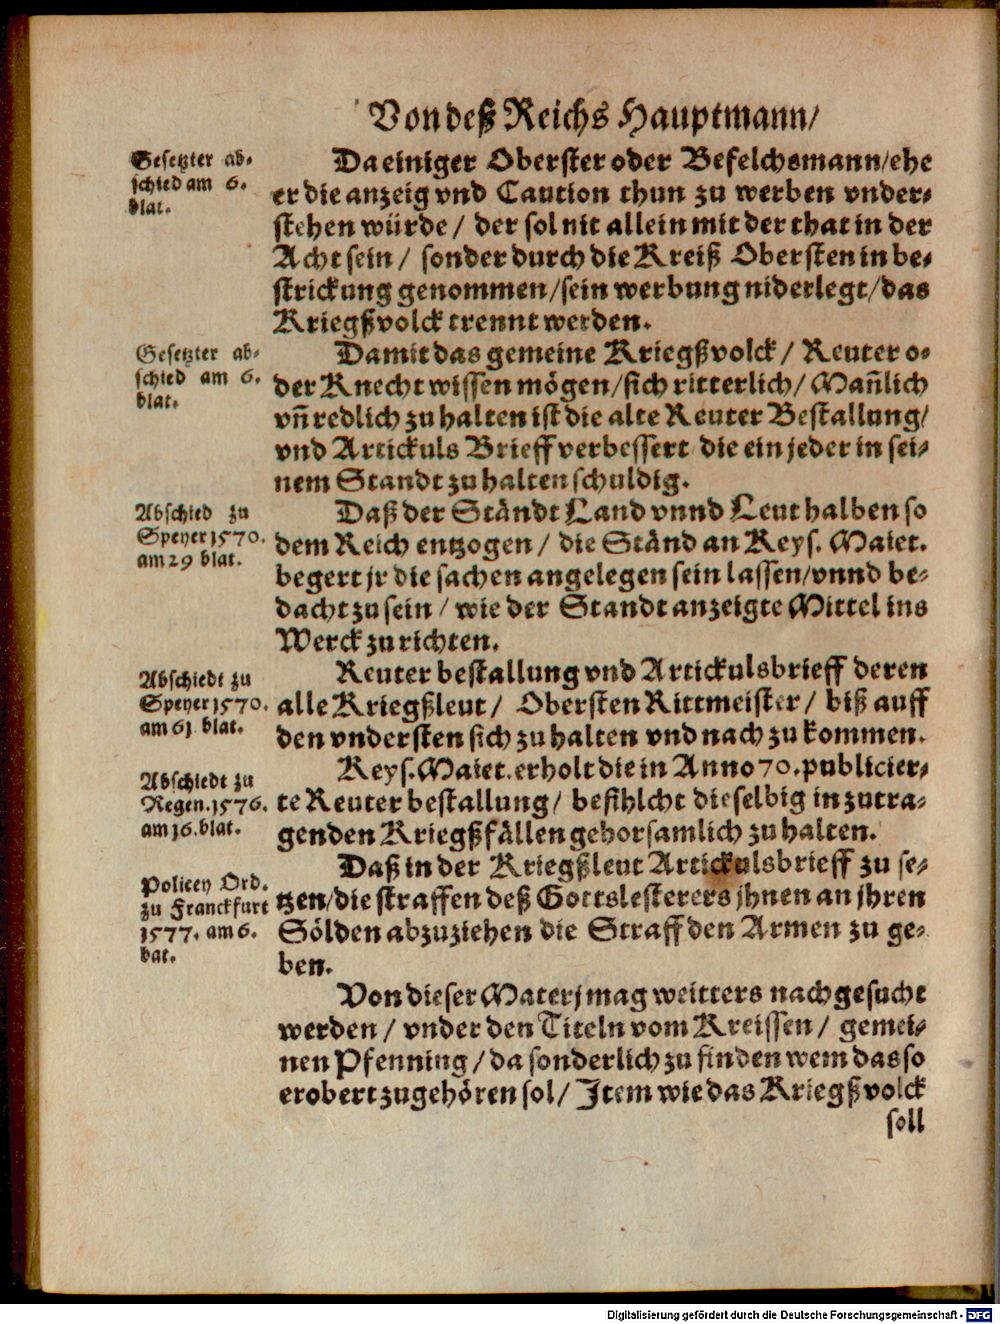 Von deß Reichs Hauptmann/
Gesetzter ab-
schied am 6.
blat.
Da einiger Oberster oder Befelchsmann/ehe
er die anzeig vnd Caution thun zu werben vnder-
stehen würde/ der sol nit allein mit der that in der
Acht sein/ sonder durch die Kreiß Obersten in be-
strickung genommen/sein werbung niderlegt/das
Kriegßvolck trennt werden.
Gesetzter ab-
schied am 6.
blat.
Damit das gemeine Kriegßvolck/ Reuter o-
der Knecht wissen mögen/sich ritterlich/ Mañlich
vñ redlich zu halten ist die alte Reuter Bestallung/
vnd Artickuls Brieff verbessert die ein jeder in sei-
nem Standt zu halten schuldig.
Abschied zu
Speyer 1570.
am 29 blat.
Daß der Ständt Land vnnd Leut halben so
dem Reich entzogen/ die Ständ an Keys. Maiet.
begert jr die sachen angelegen sein lassen/vnnd be-
dacht zu sein/ wie der Standt anzeigte Mittel ins
Werck zu richten.
Abschiedt zu
Speyer 1570.
am 61 blat.
Reuter bestallung vnd Artickulsbrieff deren
alle Kriegßleut/ Obersten Rittmeister/ biß auff
den vndersten sich zu halten vnd nach zu kommen.
Abschiedt zu
Regen. 1576.
am 16. blat.
Keys. Maiet. erholt die in Anno 70. publicier-
te Reuter bestallung/ befihlcht dieselbig in zutra-
genden Kriegßfällen gehorsamlich zu halten.
Policey Ord.
zu Franckfurt
1577. am 6.
bat.
Daß in der Kriegßleut Artickulsbrieff zu se-
tzen/die straffen deß Gottslesterers jhnen an jhren
Sölden abzuziehen die Straff den Armen zu ge-
ben.
Von dieser Materj mag weitters nachgesucht
werden/ vnder den Titeln vom Kreissen/ gemei-
nen Pfenning/ da sonderlich zu finden wem das so
erobert zugehören sol/ Item wie das Kriegßvolck
soll
Digitalisierung gefördert durch die Deutsche Forschungsgemeinschaft - DFG